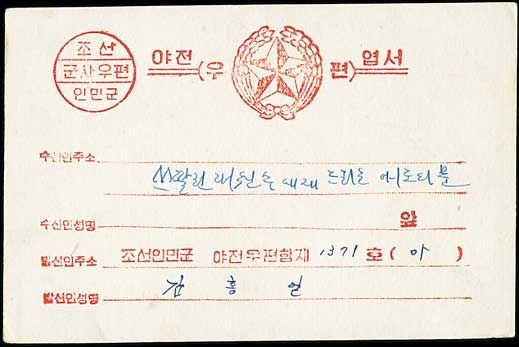 조선
군사우편
인민군
야전(우 편)엽서
수신인주소
쓰딸린 대원수 드리는
수신인성명 앞
발신인주소 조선인민군 야전우편함제 1371 호 ( 아 )
발신인성명 김 흥 일